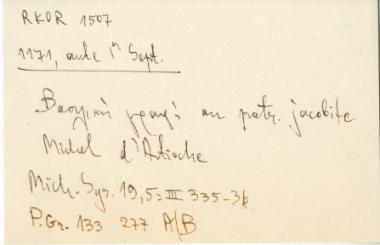 RKOR 1507
1171, ante 1er Sept.
Βασιλικὴ γραφὴ au patr. jacobite
Michel d'Antioche
Mich. Syr. 19,5 = III 335-36
P.Gr. 133 277 A/B